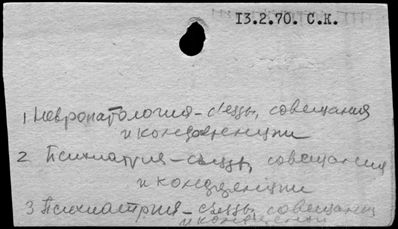 13.2.70. С.К.
1 Невропатология - съезды, совещания
и конференции
2 Психиатрия - съезды, совещания
и конференции
3 Психиатрия - съезды, совещания
и конференции